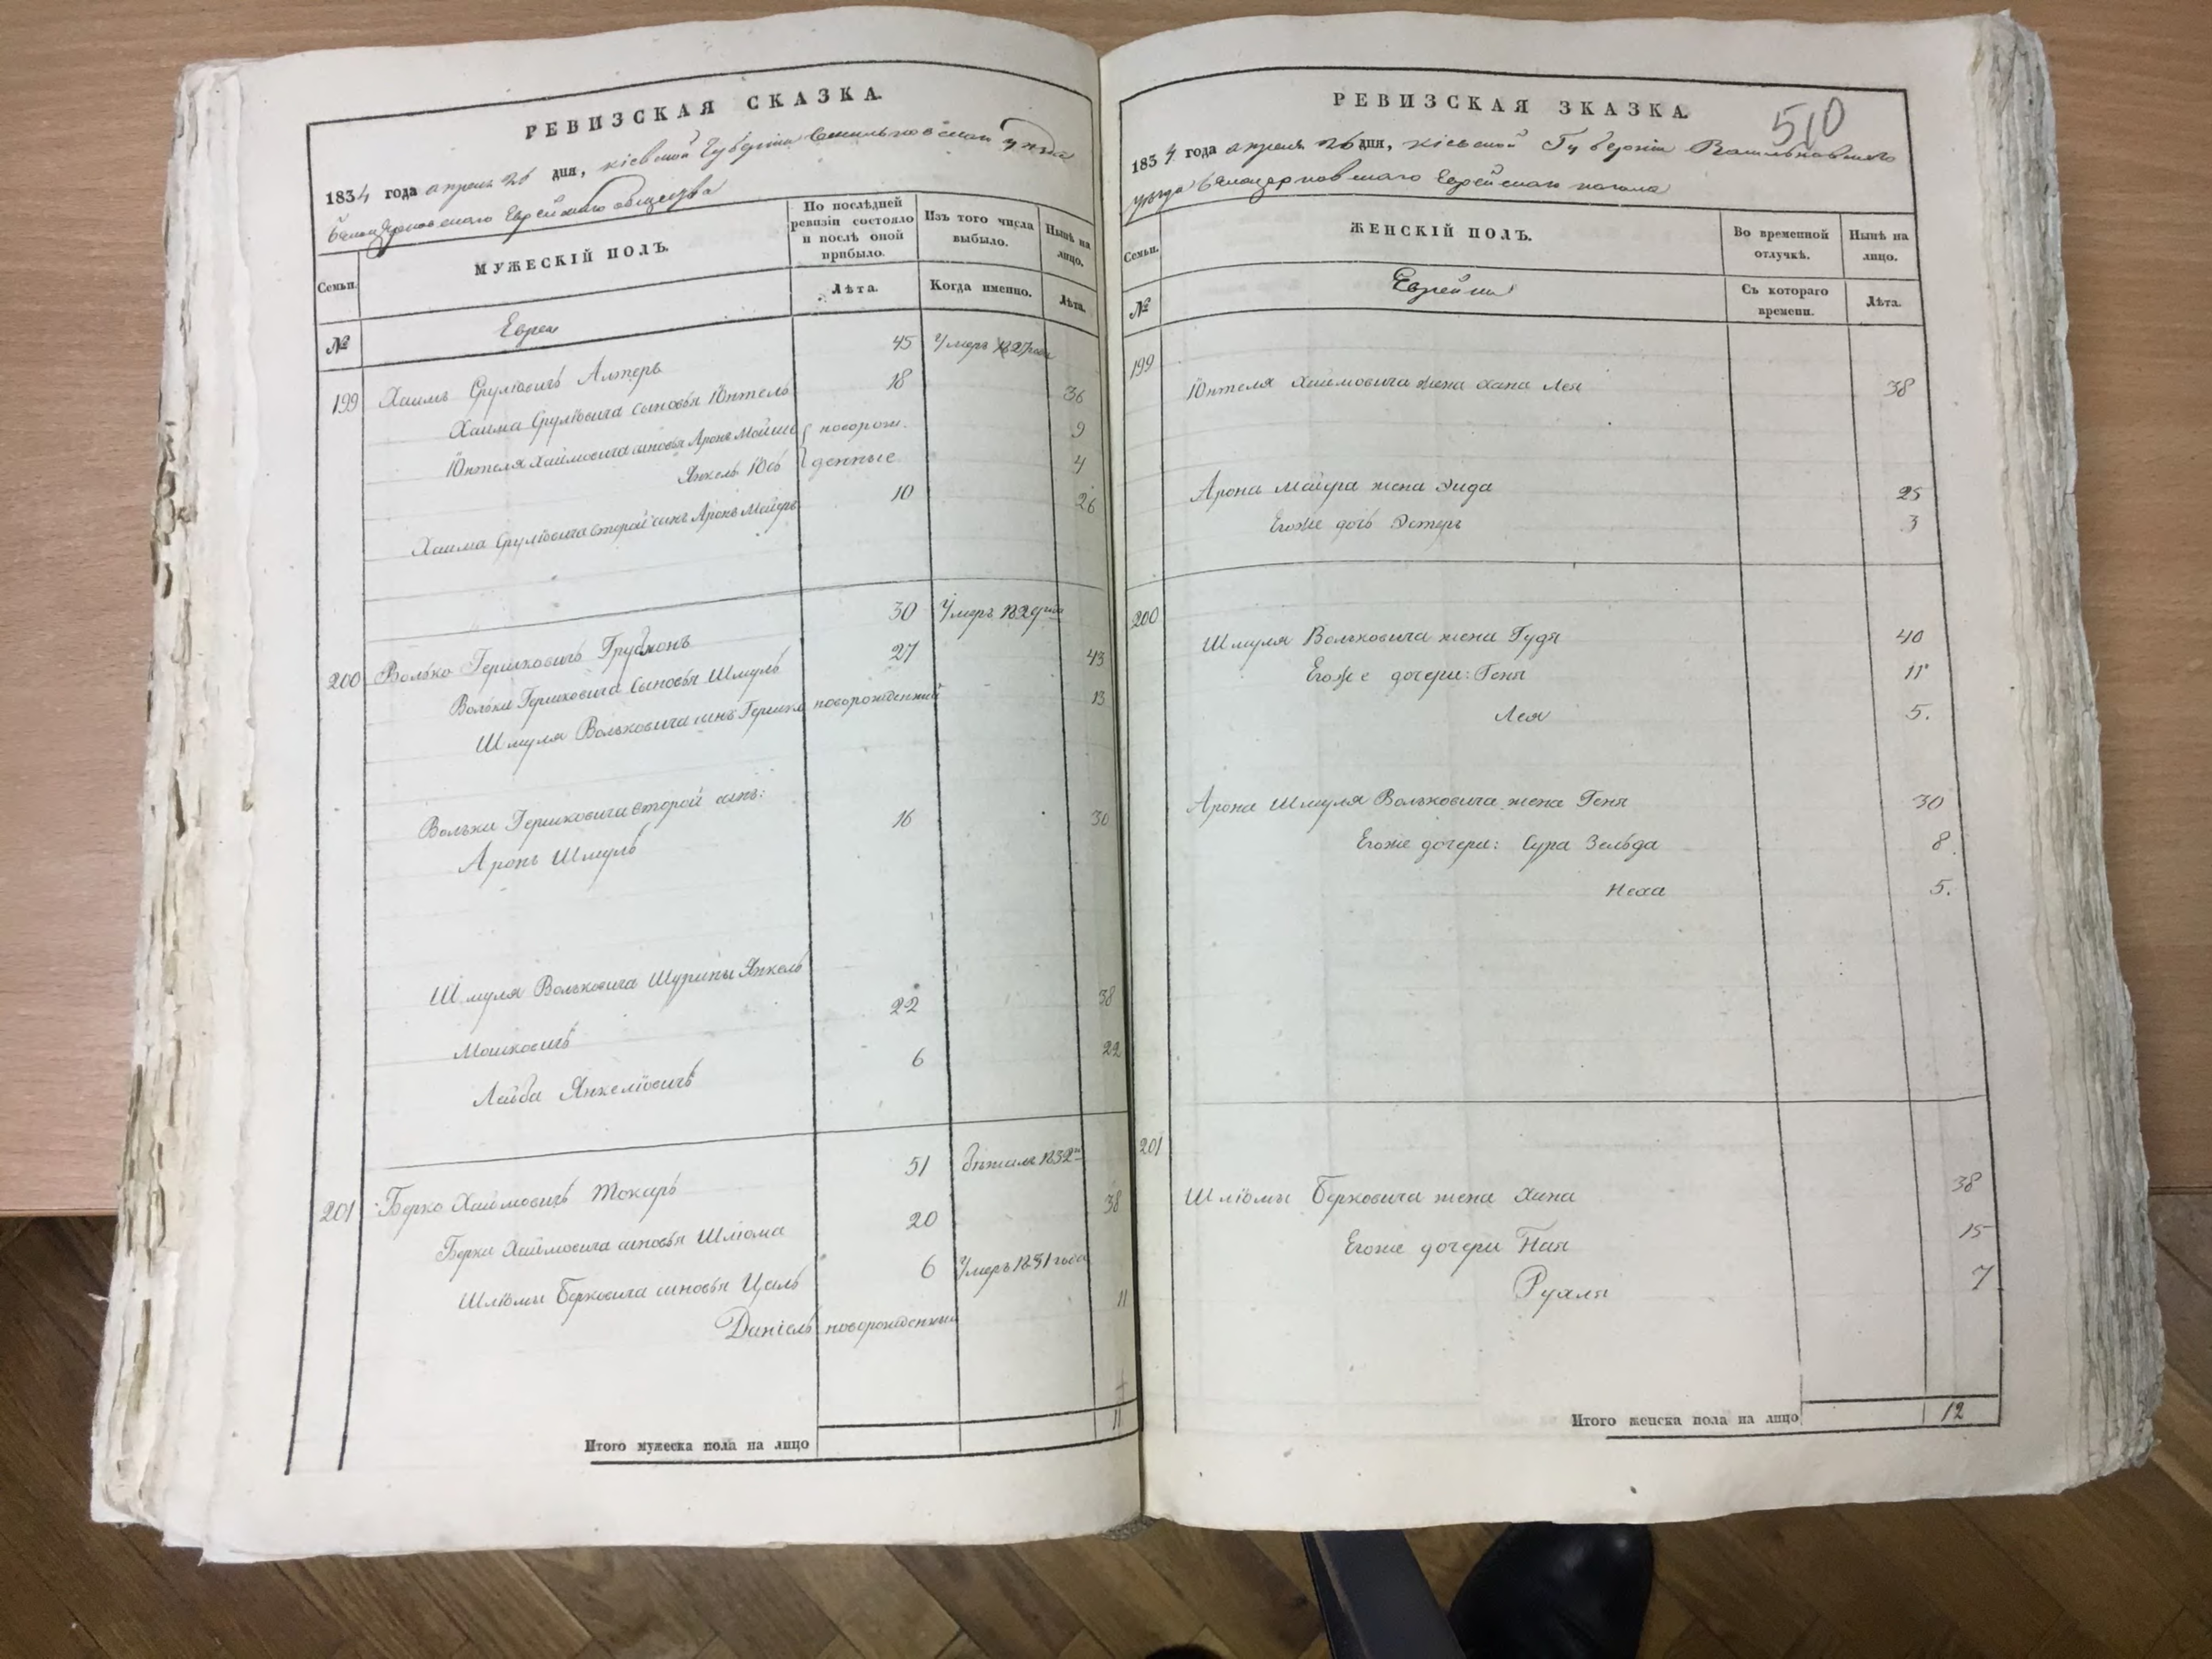 РЕВИЗСКАЯ СКАЗКА.
1834 года апреля 26 дня, Кіевской Губерніи Васильковскаго уезда
Белоцерковскаго Еврейскаго общества
Семьи.
МУЖЕСКІЙ ПОЛЪ.
По послѣдней ревизіи состояло и послѣ оной прибыло.
Изъ того числа выбыло.
Нынѣ на лицо.
№
Лѣта.
Когда именно.
Лѣта.
Евреи
199 Хаимъ Срулiовичъ Алтеръ 45 Умеръ 1827 года
Хаима Срулiовича сыновья Юнтель 18 36
Юнтеля Хаимовича сыновья Аронъ Мойше новорож- 9
Янкель Юсь денные 4
Хаима Срулiовича второй сынъ Аронъ Майеръ 10 26
200 Волько Гершковичъ 30 Умеръ 1829 года
Вольки Гершковича сыновья Шмуль 27 43
Шмуля Вольковича сынъ Гершко новорожденный 13
Вольки Гершковича второй сынъ:
Аронъ Шмуль 16 30
Шмуля Вольковича Шурины Янкель
Мошковичъ 22 38
Лейба Янкелiовичъ 6 22
201 Берко Хаимовичъ Токарь 51 бѣжалъ 1832
Берки Хаимовича сыновья Шлiома 20 38
Шлiомы Берковича сыновья Цаль 6 Умеръ 1831 года
Данiель новорожденный 11
Итого мужеска пола на лицо 11
РЕВИЗСКАЯ ЗКАЗКА.
510
1834 года апреля 26 дня, Кіевской Губерніи Васильковскаго
уезда Белоцерковскаго Еврейскаго кагала
Семьи.
ЖЕНСКІЙ ПОЛЪ.
Во временной отлучкѣ.
Нынѣ на лицо.
№
Еврейки
Съ котораго времени.
Лѣта.
199
Юнтеля Хаимовича жена Хана Лея 38
Арона Майера жена Энда 25
Егоже дочь Эстеръ 3
200
Шмуля Вольковича жена Гудя 40
Егоже дочери: Геня 11
Лея 5.
Арона Шмуля Вольковича жена Геня 30
Егоже дочери: Сура Зельда 8.
Неха 5.
201
Шлiомы Берковича жена Хана 38
Егоже дочери Ная 15
Рухля 7
Итого женска пола на лицо 12